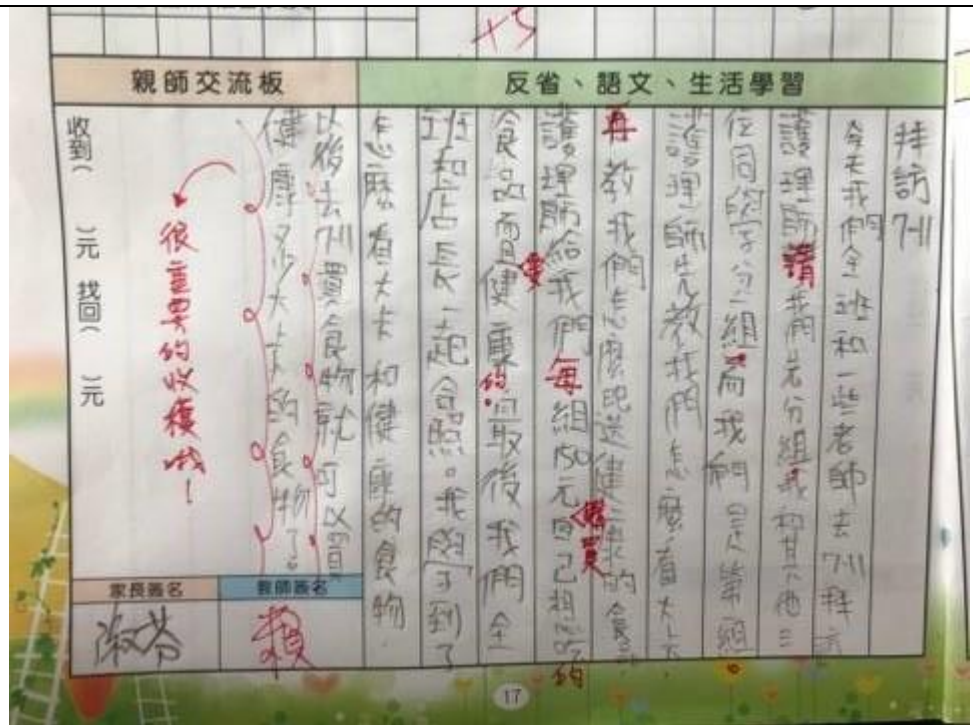 +5
反省、語文、生活學習
親師交流板
拜訪7-11
今天我們全班和一些老師去7-11拜訪
護理師請我們先分組我和其他三
位同的字分組而我們是第組。
護理師先教我們怎麼看大卡
再教我們怎麼挑選健康的食品
護理師給我們每組150元買自己想吃的
食品而且要健康的。最後我們全
班和店長一起合照。我學到了
怎麼看大卡和健康的食物
以後去7-11買食物就可以買
健康少大卡的食物了。
很重要的收穫哦!
收到( )元 找回( )元
教師簽名
賴
家長簽名
淑芬
17